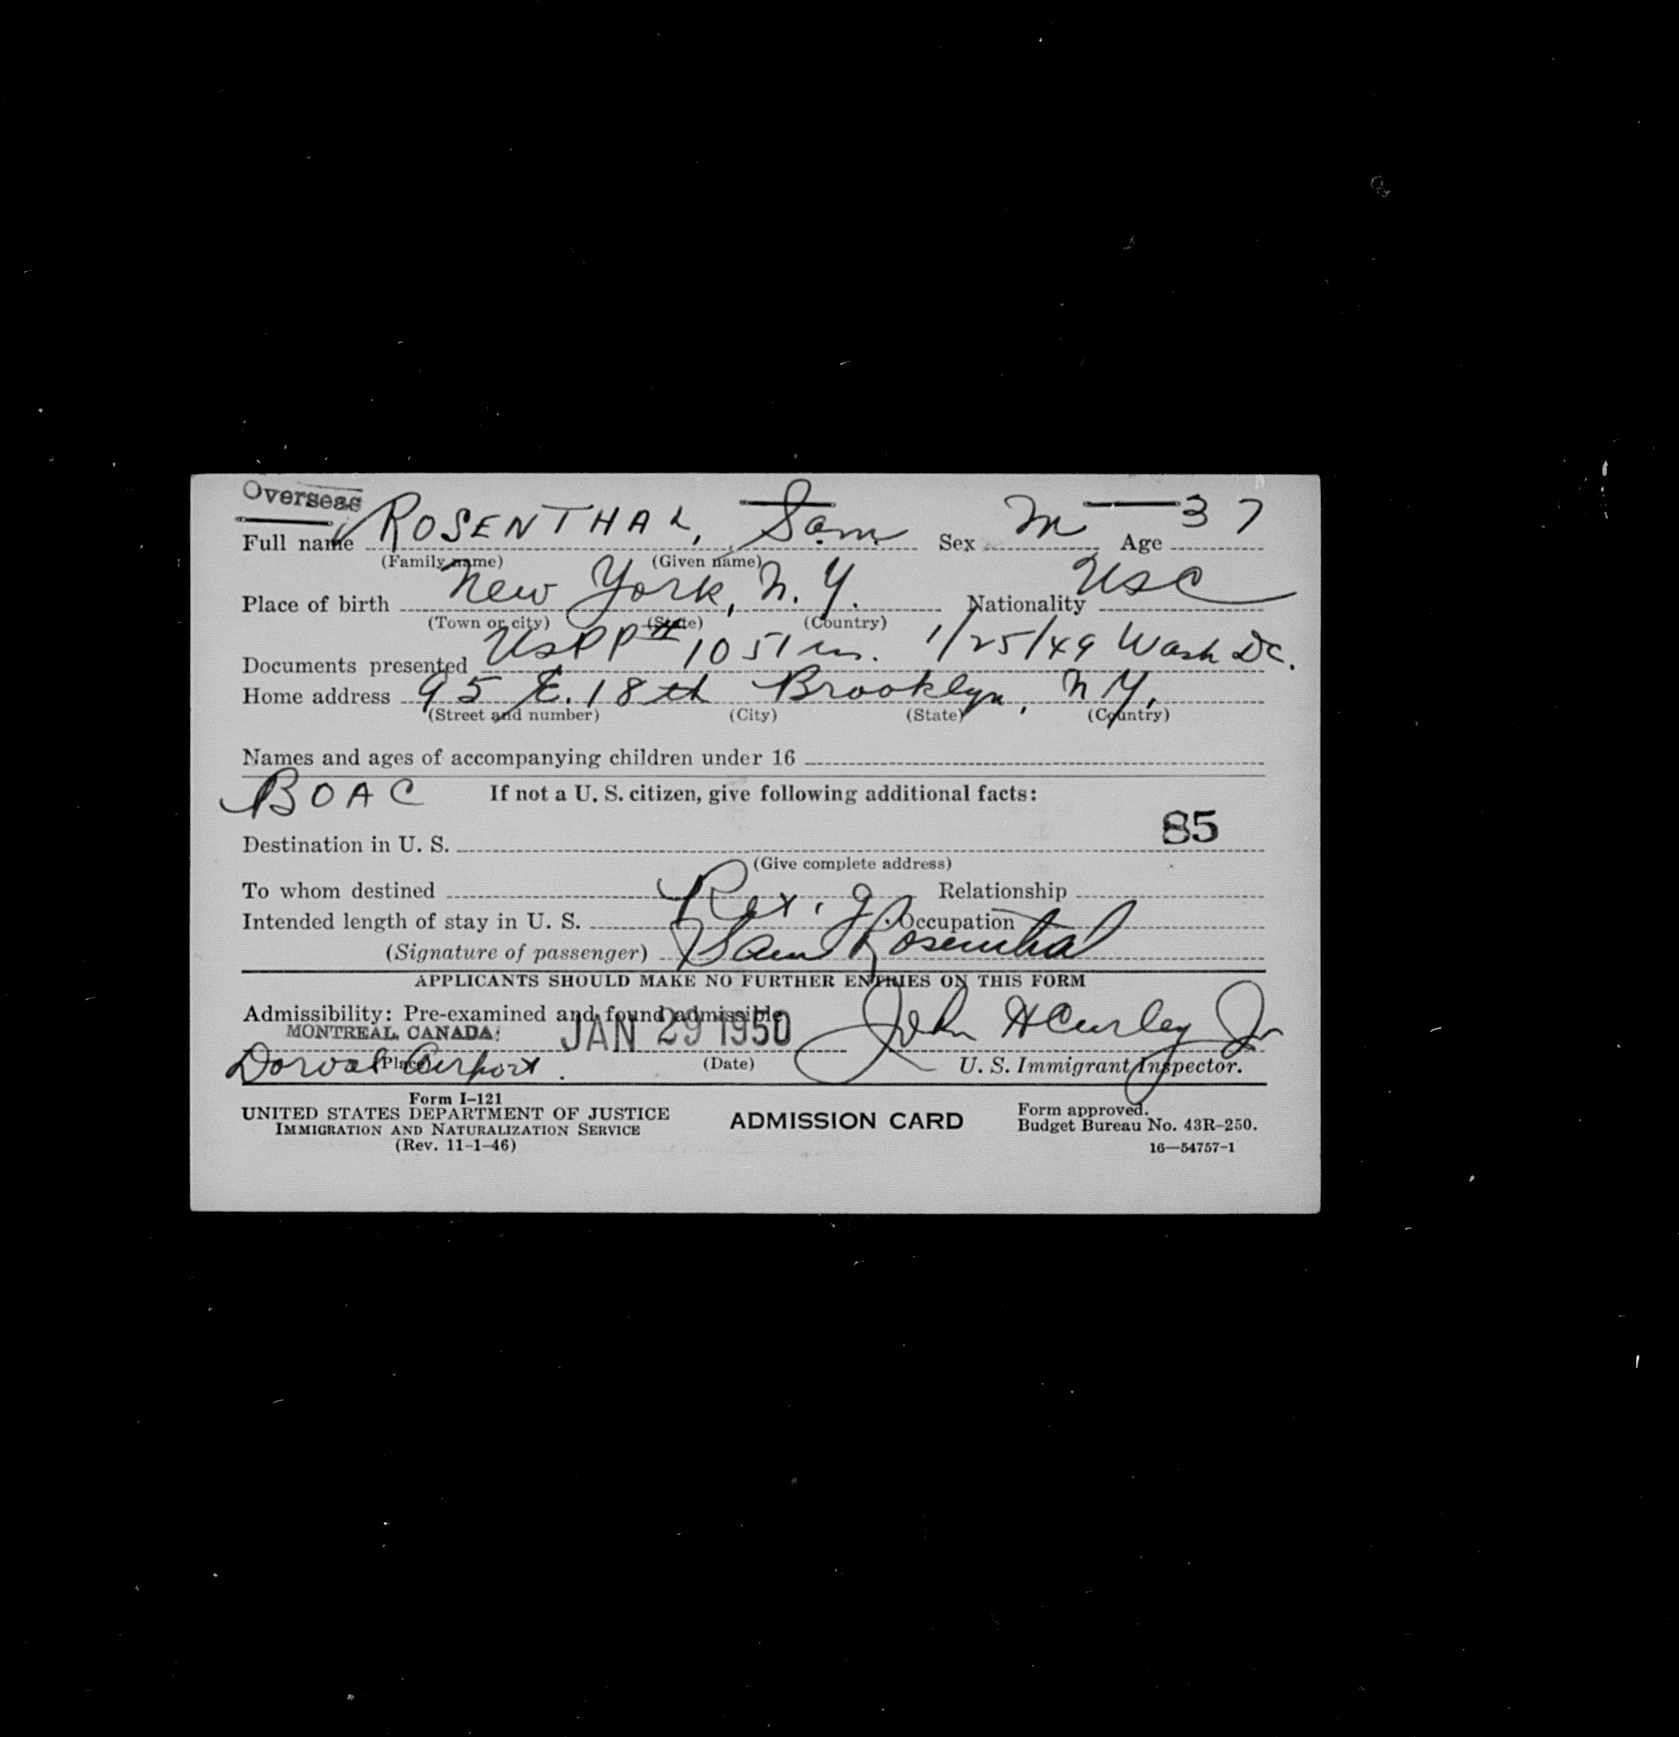 Overseas
Full name ROSENTHAL, Sam Sex M Age 37
(Family name) (Given name)
Place of birth New York, N.Y. Nationality USC
(Town or city) (State) (Country)
Documents presented USPP# 1051 1/25/49 Wash DC.
Home address 95 E. 18th Brooklyn, NY.
(Street and number) (City) (State) (Country)
Names and ages of accompanying children under 16
BOAC If not a U. S. citizen, give following additional facts:
85
Destination in U. S.
(Give complete address)
To whom destined Relationship
Intended length of stay in U. S. Occupation
(Signature of passenger) Sam Rosenthal
APPLICANTS SHOULD MAKE NO FURTHER ENTRIES ON THIS FORM
Admissibility: Pre-examined and found admissible
MONTREAL, CANADA: JAN 29 1950 John H Curley Jr
Dorval Airport.
(Place) (Date) U. S. Immigrant Inspector.
Form I-121
UNITED STATES DEPARTMENT OF JUSTICE
IMMIGRATION AND NATURALIZATION SERVICE
(Rev. 11-1-46)
ADMISSION CARD
Form approved.
Budget Bureau No. 43R-250.
16—54757-1